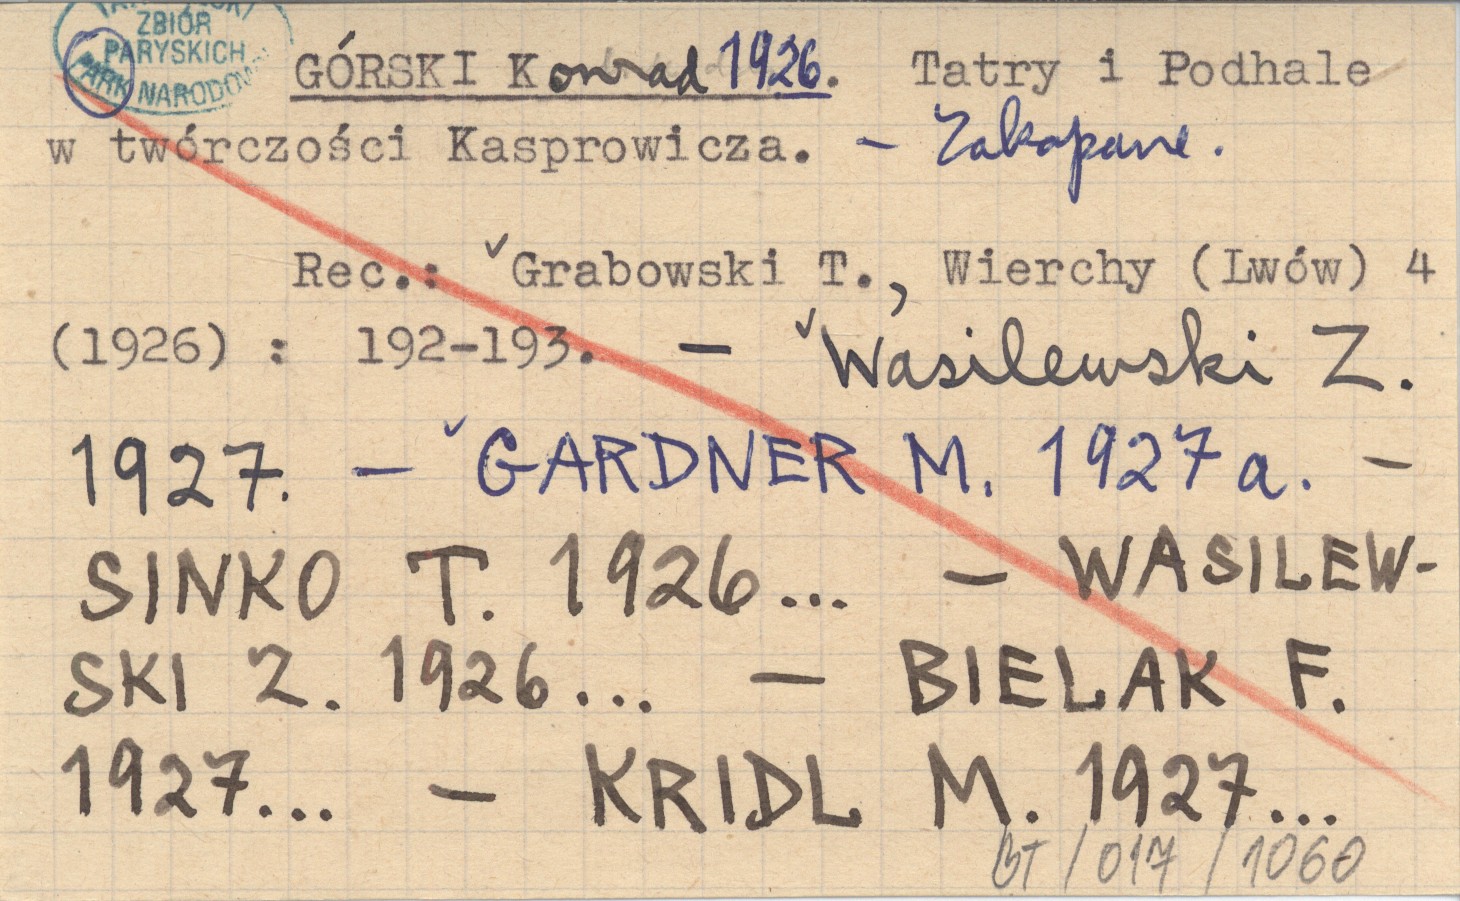 ZBIÓR
PARYSKICH
PARK NARODOW
GÓRSKI Konrad 1926. Tatry i Podhale
w twórczości Kasprowicza. – Zakopane.
Rec.: ˇGrabowski T., Wierchy (Lwów) 4
(1926) : 192-193. – ˇWasilewski Z.
1927. – ˇGARDNER M. 1927a. –
SINKO T. 1926... – WASILEW-
SKI Z. 1926... – BIELAK F.
1927... – KRIDL M. 1927...
BT / 017 / 1060